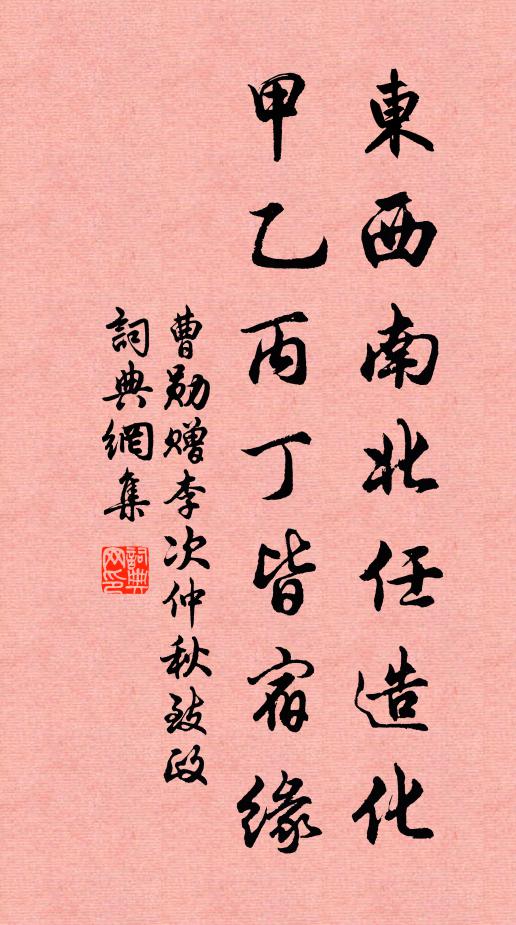 東西南北任造化
甲乙丙丁皆宿緣
曹勛贈李次仲秋致政
詞典網集
詞典網印